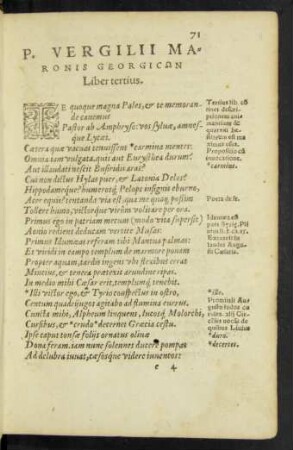 71
P. VERGILII MA-
RONIS GEORGICΩN
Liber tertius.
TE quoque magna Pales, & te memoran-
de canemus
Pastor ab Amphryso: vos syluæ, amnes-
que Lycæi.
Cætera quæ vacuas tenuissent *carmina mentes
Omnia iam vulgata. quis aut Eurysthea durum,
Aut illaudati nescit Busiridis aras?
Cui non dictus Hylas puer, & Latonia Delos?
Hippodameque? humeroq; Pelops insignis eburno,
Acer equis? tentanda via est qua me quoq; possim
Tollere humo, victorque virûm volitare per ora.
Primus ego in patriam mecum (modo vita supersit)
Aonio rediens deducam vertice Musas:
Primus Idumæas referam tibi Mantua palmas:
Et viridi in campo templum de marmore ponam
Propter aquam, tardis ingens vbi flexibus errat
Mincius, & tenera prætexit arundine ripas.
In medio mihi Cæsar erit, templumq; tenebit.
*Illi victor ego, & Tyrio conspectus in ostro,
Centum quadriiugos agitabo ad flumina currus.
Cuncta mihi, Alpheum linquens, lucosq; Molorchi,
Cursibus, & *crudo *decernet Græcia cestu.
Ipse caput tonsæ foliis ornatus oliuæ
Dona feram. iam nunc solennes ducere pompas
Ad delubra iuuat, cæsosque videre iuuencos:
e 4
Tertius lib.
Propositio
Poeta de se.
*illic.
*duro.
*decertet.